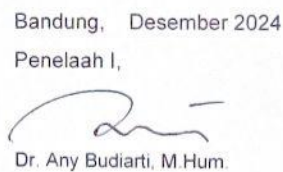 Bandung, Desember 2024
Penelaah I,
Dr. Any Budiarti, M.Hum.